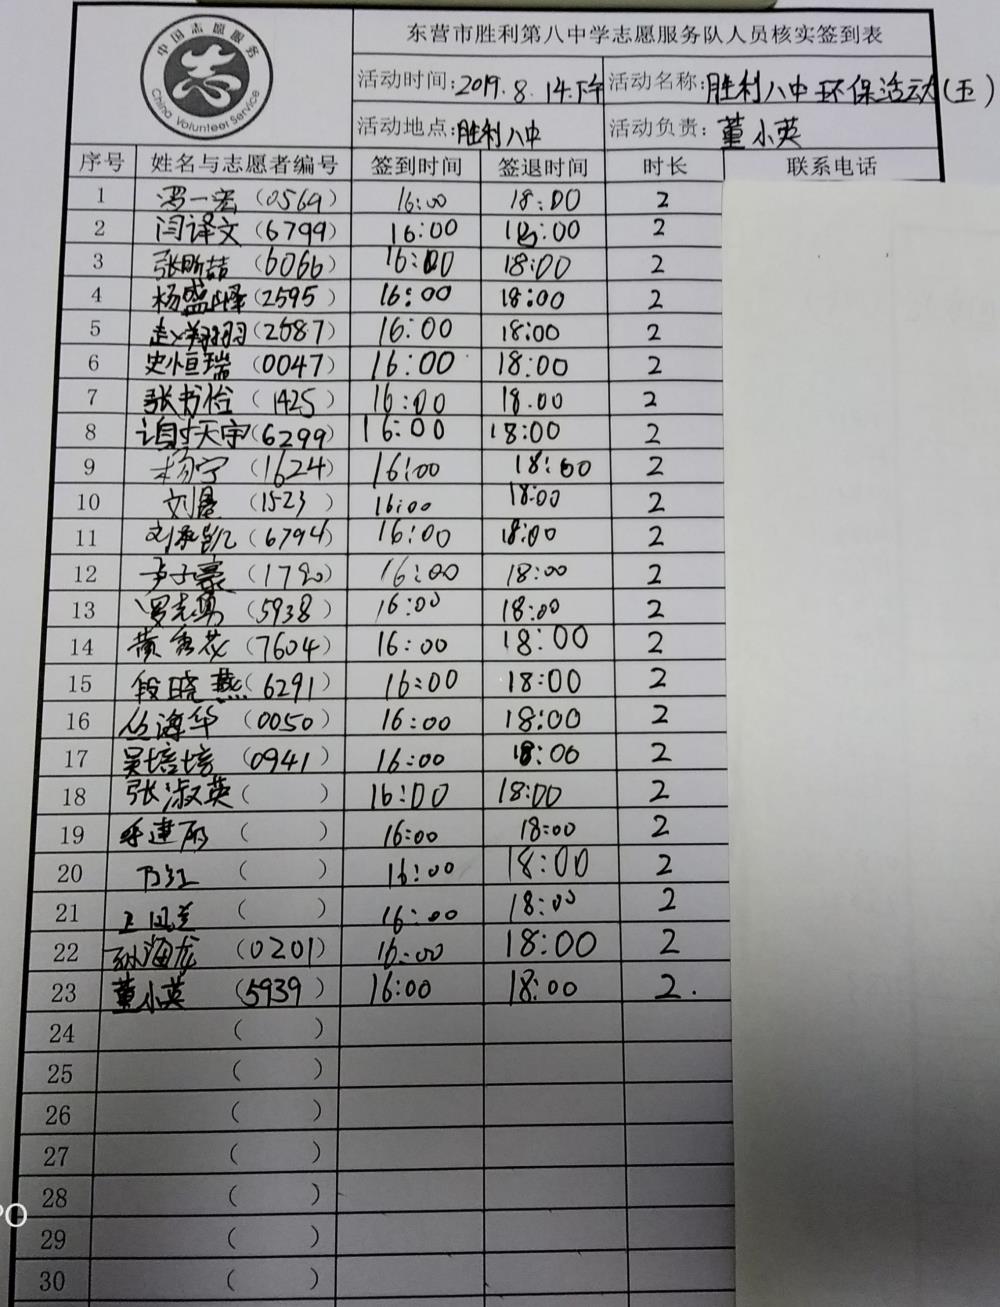 中国志愿服务
志
China Volunteer Service
东营市胜利第八中学志愿服务队人员核实签到表
活动时间:2019.8.14.下午 活动名称:胜利八中环保活动(五)
活动地点:胜利八中 活动负责:董小英
序号 姓名与志愿者编号 签到时间 签退时间 时长 联系电话
1 (0569) 16:00 18:00 2
2 闫译文(6799) 16:00 18:00 2
3 张昕喆(6066) 16:00 18:00 2
4 杨盛峄(2595) 16:00 18:00 2
5 赵翔羽(2687) 16:00 18:00 2
6 史恒瑞(0047) 16:00 18:00 2
7 张书怡(1425) 16:00 18.00 2
8 谢天宇(6299) 16:00 18:00 2
9 杨宁(1624) 16:00 18:00 2
10 刘(1523) 16:00 18:00 2
11 刘承凯(6794) 16:00 18:00 2
12 尹子豪(1720) 16:00 18:00 2
13 罗克勇(5938) 16:00 18:00 2
14 黄秀花(7604) 16:00 18:00 2
15 段晓燕(6291) 16:00 18:00 2
16 丛海华(0050) 16:00 18:00 2
17 吴培培(0941) 16:00 18:00 2
18 张淑英( ) 16:00 18:00 2
19 ( ) 16:00 18:00 2
20 ( ) 16:00 18:00 2
21 王凤兰( ) 16:00 18:00 2
22 孙海龙(0201) 16:00 18:00 2
23 董小英(5939) 16:00 18:00 2.
24 ( )
25 ( )
26 ( )
27 ( )
28 ( )
29 ( )
30 ( )